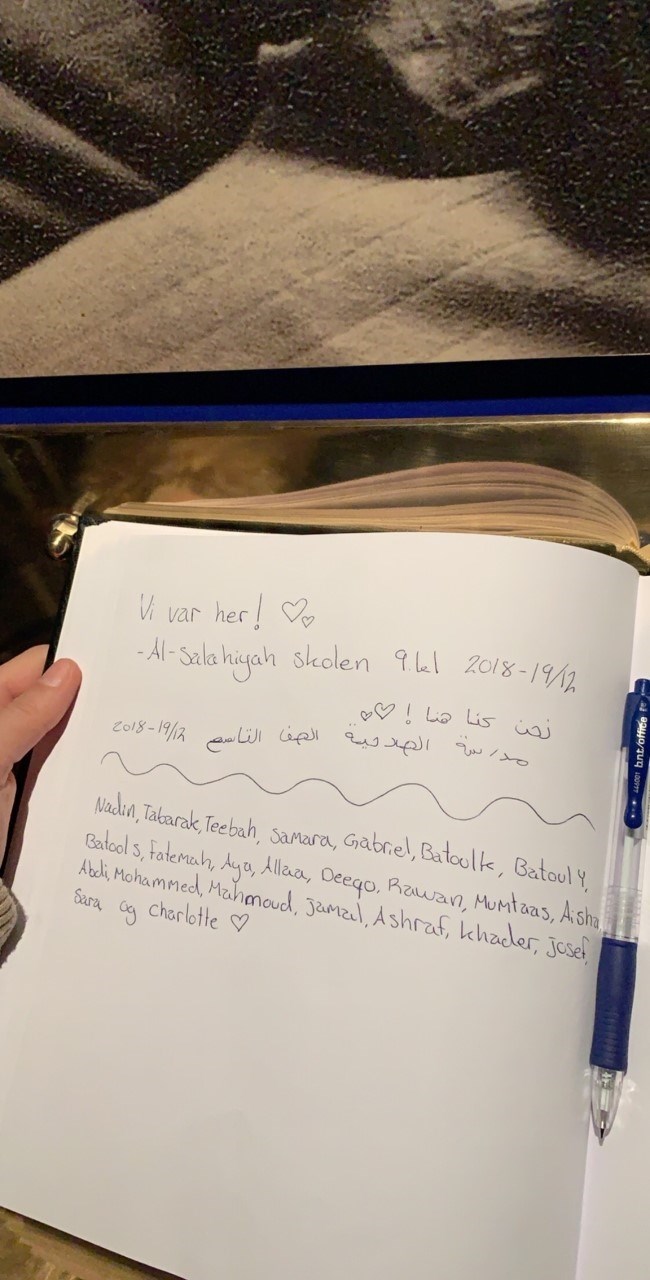 Vi var her! ♡♡
-Al-Salahiyah skolen 9.kl 2018-19/12
نحن كنا هنا ! ♡♡
مدرسة الصلاحية الصف التاسع 2018-19/12
Nadin, Tabarak, Teebah, Samara, Gabriel, Batoulk, Batoul Y,
Batool S, Fatemah, Aya, Allaa, Deeqo, Rawan, Mumtaas, Aisha
Abdi, Mohammed, Mahmoud, Jamal, Ashraf, Khader, Josef,
Sara og Charlotte ♡
bnt/office